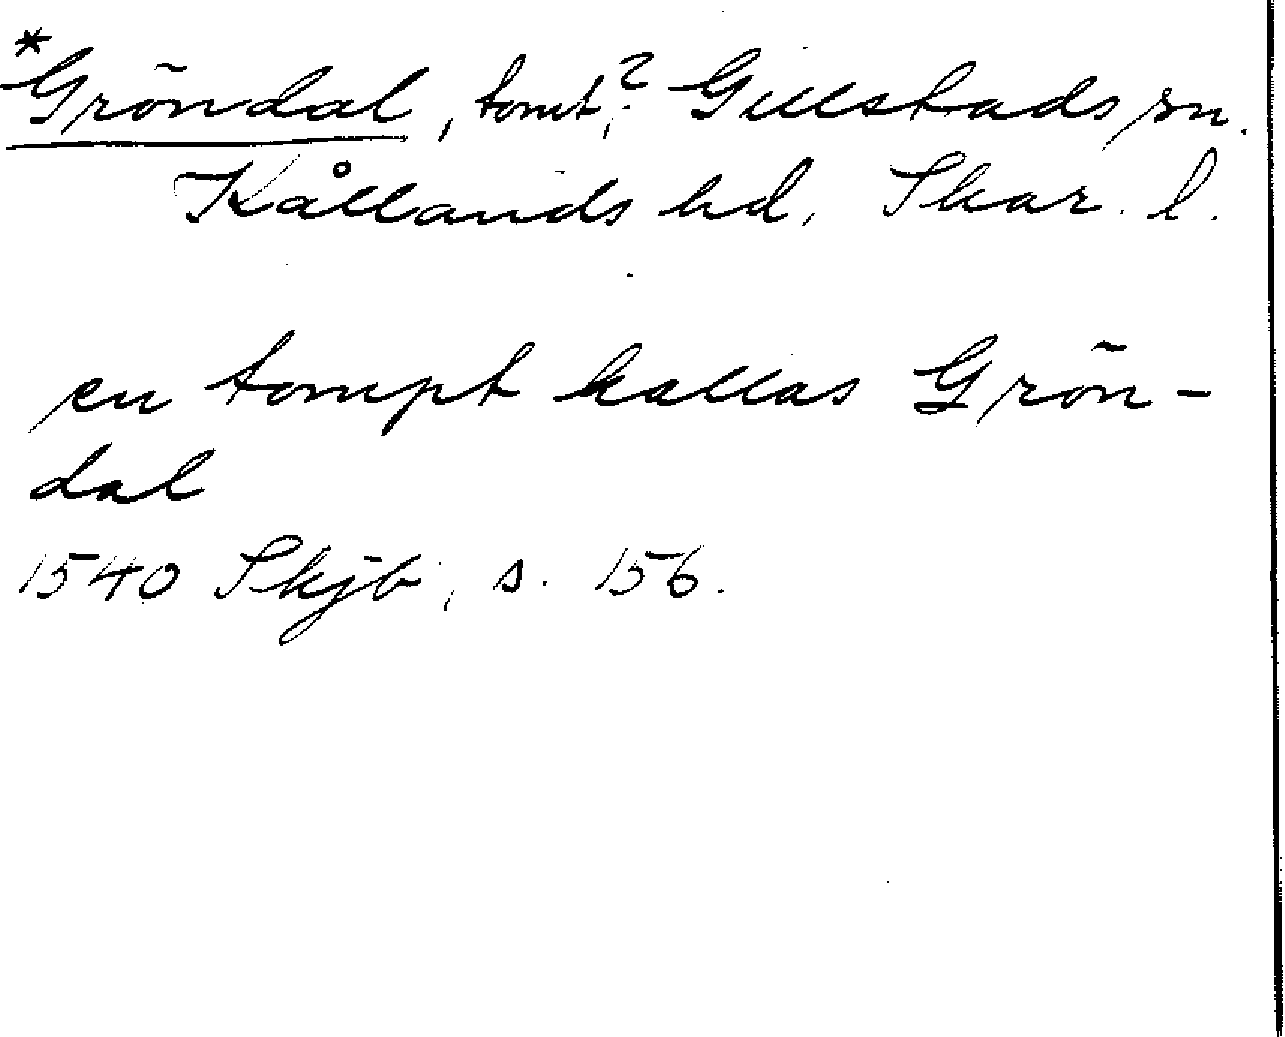 *Gröndal, tomt,? Gillstads sn.
Kållands hd, Skar. l.
en tompt kallas Grön-
dal
1540 Skjb, s. 156.